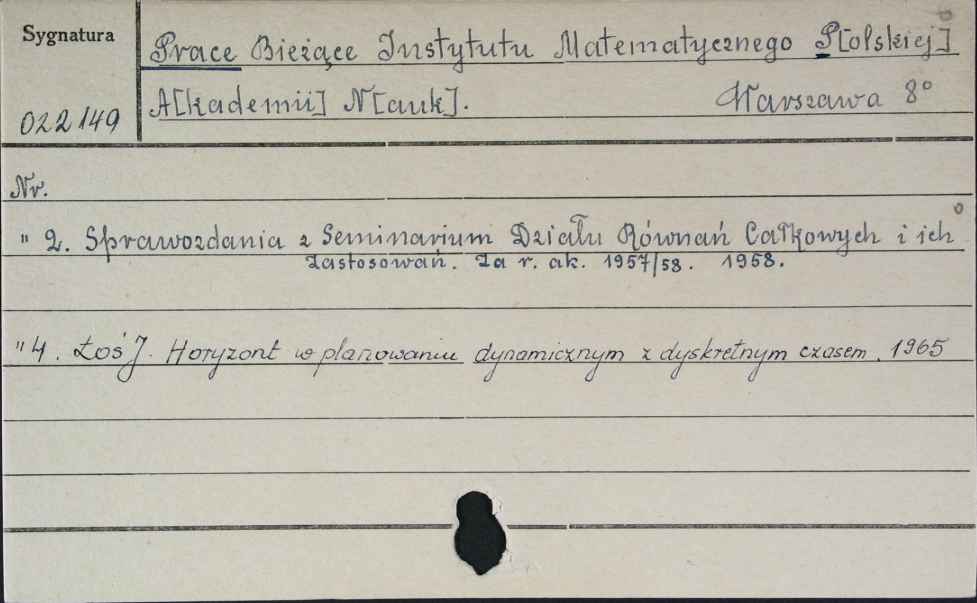 Sygnatura
Prace Bieżące Instytutu Matematycznego P[olskiej]
A[kademii] N[auk]. Warszawa 8°
022149
Nr.
" 2. Sprawozdania z Seminarium Działu Równań Całkowych i ich
zastosowań. Za r. ak. 1957/58. 1958.
" 4. Łoś J. Horyzont w planowaniu dynamicznym z dyskretnym czasem. 1965